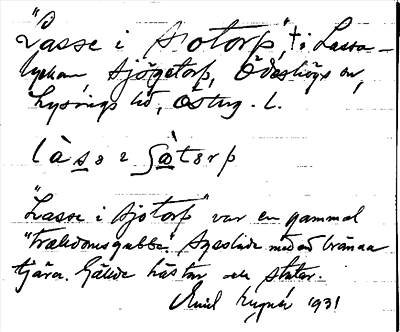 "Lasse i Sjötorp", † i Lassa-
lyckan, Sjögetorp, Ödeshögs sn,
Lysings hd, Österg. l.
làse i Sjòtɛrp
"Lasse i Sjötorp" var en gammal
"trolldomsgubbe". Sysslade med att bränna
tjära. Gällde hästar och stutar.
Emil 1931